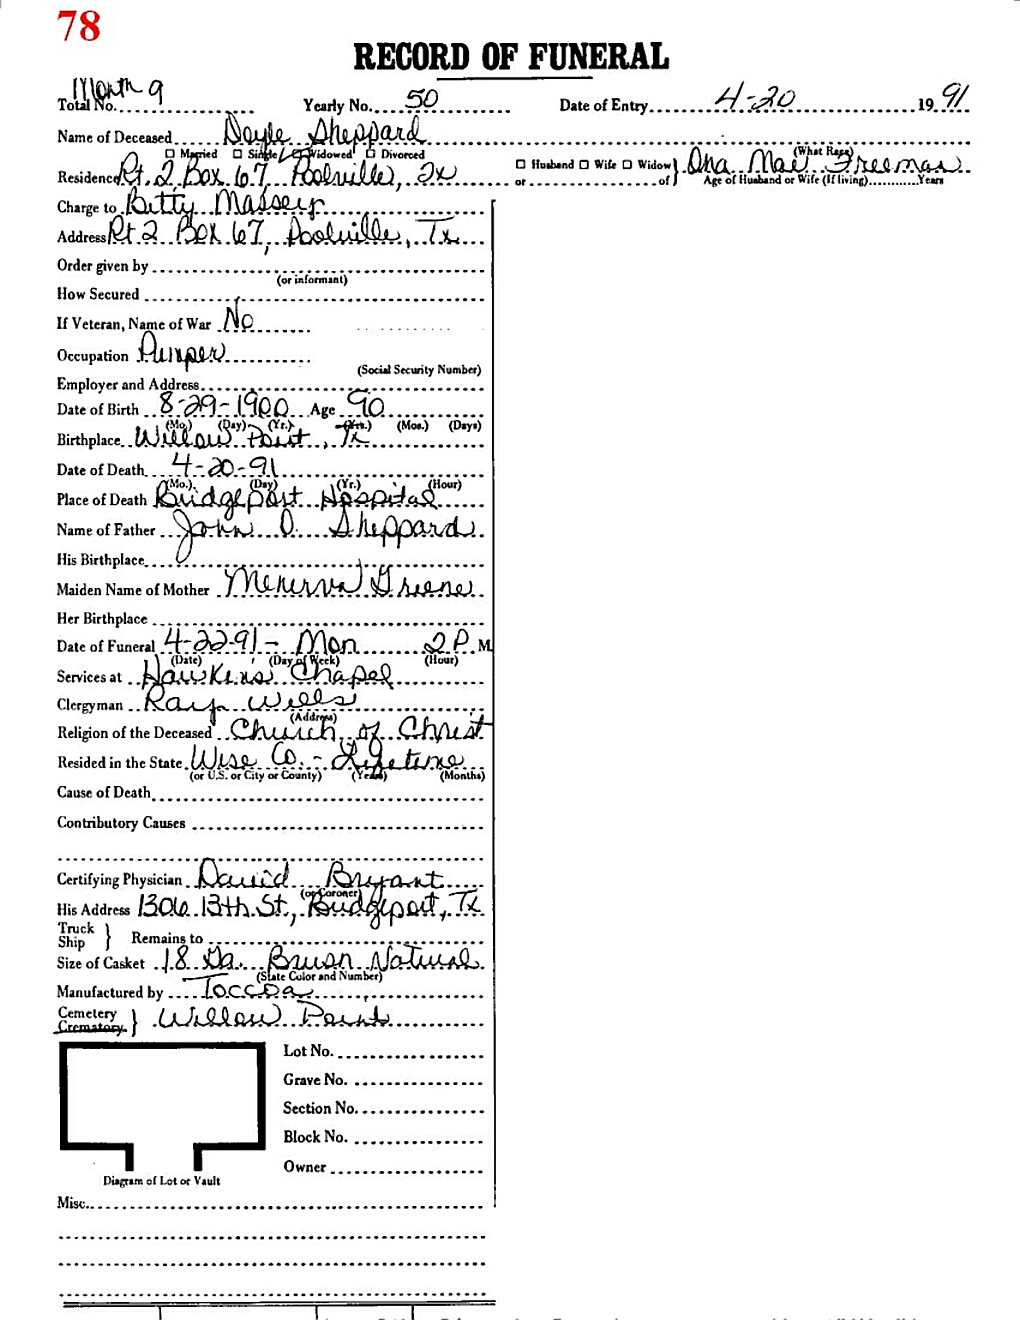 78
RECORD OF FUNERAL
Month 9
Total No. Yearly No. 50 Date of Entry 4-20 1991
Name of Deceased Doyle Sheppard (What Race)
☐ Married ☐ Single ☑ Widowed ☐ Divorced
☐ Husband ☐ Wife ☐ Widow } Ona Mae Freeman
Residence Rt. 2 Box 67 Poolville, Tx or of } Age of Husband or Wife (If living) Years
Charge to Betty Massey
Address Rt 2 Box 67, Poolville, Tx
Order given by
(or informant)
How Secured
If Veteran, Name of War No
Occupation Pumper
(Social Security Number)
Employer and Address
Date of Birth 8-29-1900 Age 90
(Mo.) (Day) (Yr.) (Yrs.) (Mos.) (Days)
Birthplace Willow Point, Tx
Date of Death 4-20-91
(Mo.) (Day) (Yr.) (Hour)
Place of Death Bridgeport Hospital
Name of Father John D. Sheppard
His Birthplace
Maiden Name of Mother Menerva Greene
Her Birthplace
Date of Funeral 4-22-91 - Mon 2 P. M.
(Date) (Day of Week) (Hour)
Services at Hawkins Chapel
Clergyman Ray Wells
(Address)
Religion of the Deceased Church of Christ
Resided in the State Wise Co. - Lifetime
(or U.S. or City or County) (Years) (Months)
Cause of Death
Contributory Causes
Certifying Physician David Bryant
(or Coroner)
His Address 1306 13th St., Bridgeport, Tx
Truck
Ship } Remains to
Size of Casket 18 Ga. Brusn Natural
(State Color and Number)
Manufactured by Toccoa
Cemetery
Crematory } Willow Point
Lot No.
Grave No.
Section No.
Block No.
Owner
Diagram of Lot or Vault
Misc.